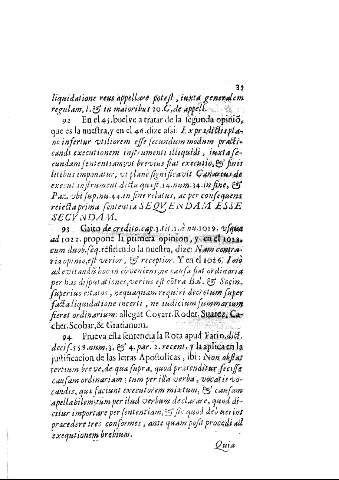 37
liquidatione reus appellare potest, iuxta generalem
regulam, l. & in maioribus 20. C. de appell.
92 En el 45. buelve a tratar de la segunda opiniõ,
que es la nuestra, y en el 46. dize assi: Ex prædictis pla-
nè infertur vtiliorem esse secundum modum practi-
candi executionem instrumenti illiquidi, iuxta se-
cundam sententiam, vt brevius fiat executio, & finis
litibus imponatur, vt planè significavit Cañarius de
execut. instrument. dictu quæst. 14. num. 34. in fine, &
Paz. vbi sup. nu. 44. in fine relatus, ac per consequens
reiecta prima sententia SEQVENDAM ESSE
SECVNDAM.
93 Gaito de credito, cap. 3. tit. 1. à nu. 1019. vsque
ad 1022. propone la primera opinion, y en el 1023.
cum duob. seq. refiriendo la nuestra, dize: Nam contra-
ria opinio, est verior, & receptior. Y en el 1026. Imò
ad evitandis hoc inconveniens, ne causa fiat ordinaria
per has disputationes, verius est cõtra Bal. & Socin.
superius citatos, nequaquam requiri decretum super
facta liquidatione incerti, ne iudicium summarium
fieret ordinarium: allegat Covarr. Roder. Suarez, Ca-
cher. Scobar, & Gratianum.
94 Prueva esta sentencia la Rota apud Farin. dict.
decis. 558. num. 3. & 4. par. 2. recent. y la aplica en la
justificacion de las letras Apostolicas, ibi: Non obstat
tertium breve, de qua supra, quod prætenditur fecisse
causam ordinariam: tum per illa verba, vocatis vo-
candis, qua faciunt executorem mixtum, & causam
apellabilem: tum per illud verbum declarare, quod di-
citur importare per sententiam, & sic quod debuerint
procedere tres conformes, ante quam posit procedi ad
exequutionem brevium.
Quia